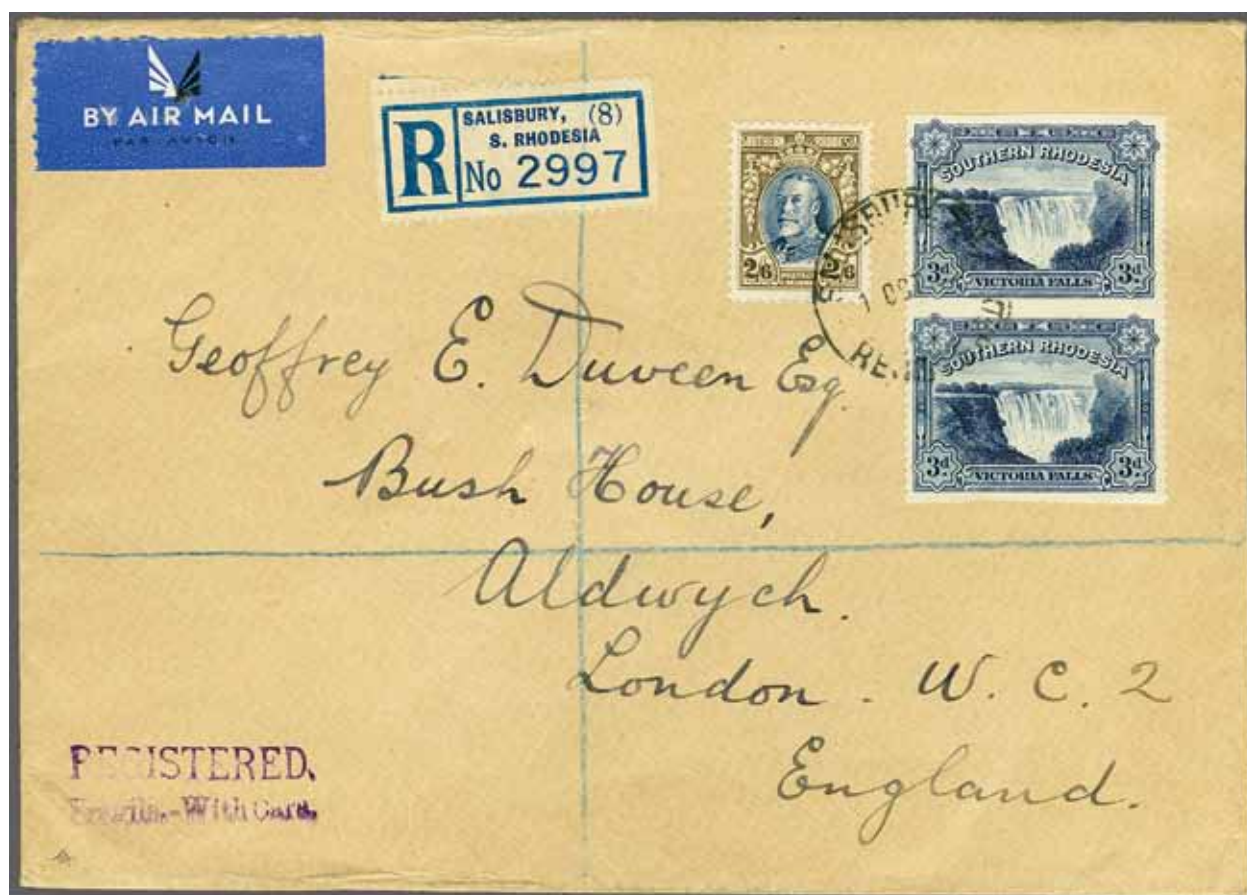 BY AIR MAIL
PAR AVION
R
SALISBURY, (8)
S. RHODESIA
No 2997
2/6 2/6
SOUTHERN RHODESIA
3d 3d
VICTORIA FALLS
SOUTHERN RHODESIA
3d 3d
VICTORIA FALLS
Geoffrey E. Duveen Esq.
Bush House,
Aldwych.
London. W. C. 2
England.
REGISTERED.
With Care.